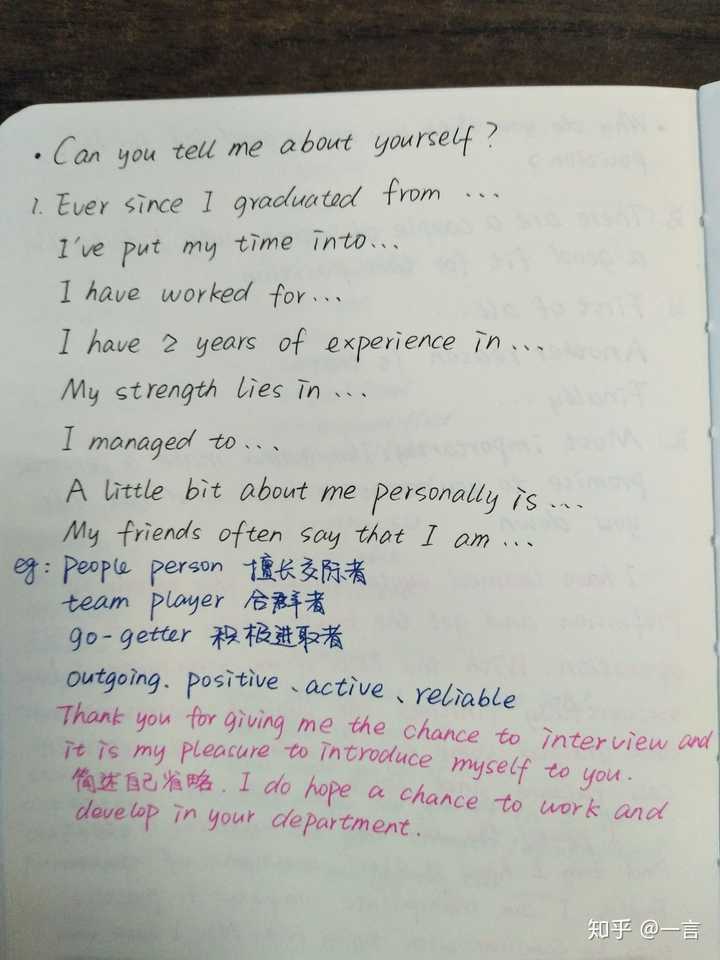 · Can you tell me about yourself?
1. Ever since I graduated from ...
I've put my time into...
I have worked for...
I have 2 years of experience in...
My strength lies in ...
I managed to...
A little bit about me personally is...
My friends often say that I am ...
eg: people person 擅长交际者
team player 合群者
go-getter 积极进取者
outgoing. positive、active、reliable
Thank you for giving me the chance to interview and
it is my pleasure to introduce myself to you.
简述自己省略. I do hope a chance to work and
develop in your department.
知乎 @一言